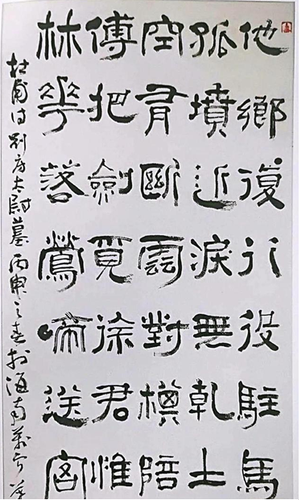 他鄉復行役駐馬
孤墳近淚無乾土
空有斷雲對棋陪
傅把劍覓徐君惟
林花落鶯啼送客
杜甫詩別房太尉墓丙申之春於海南萬寧